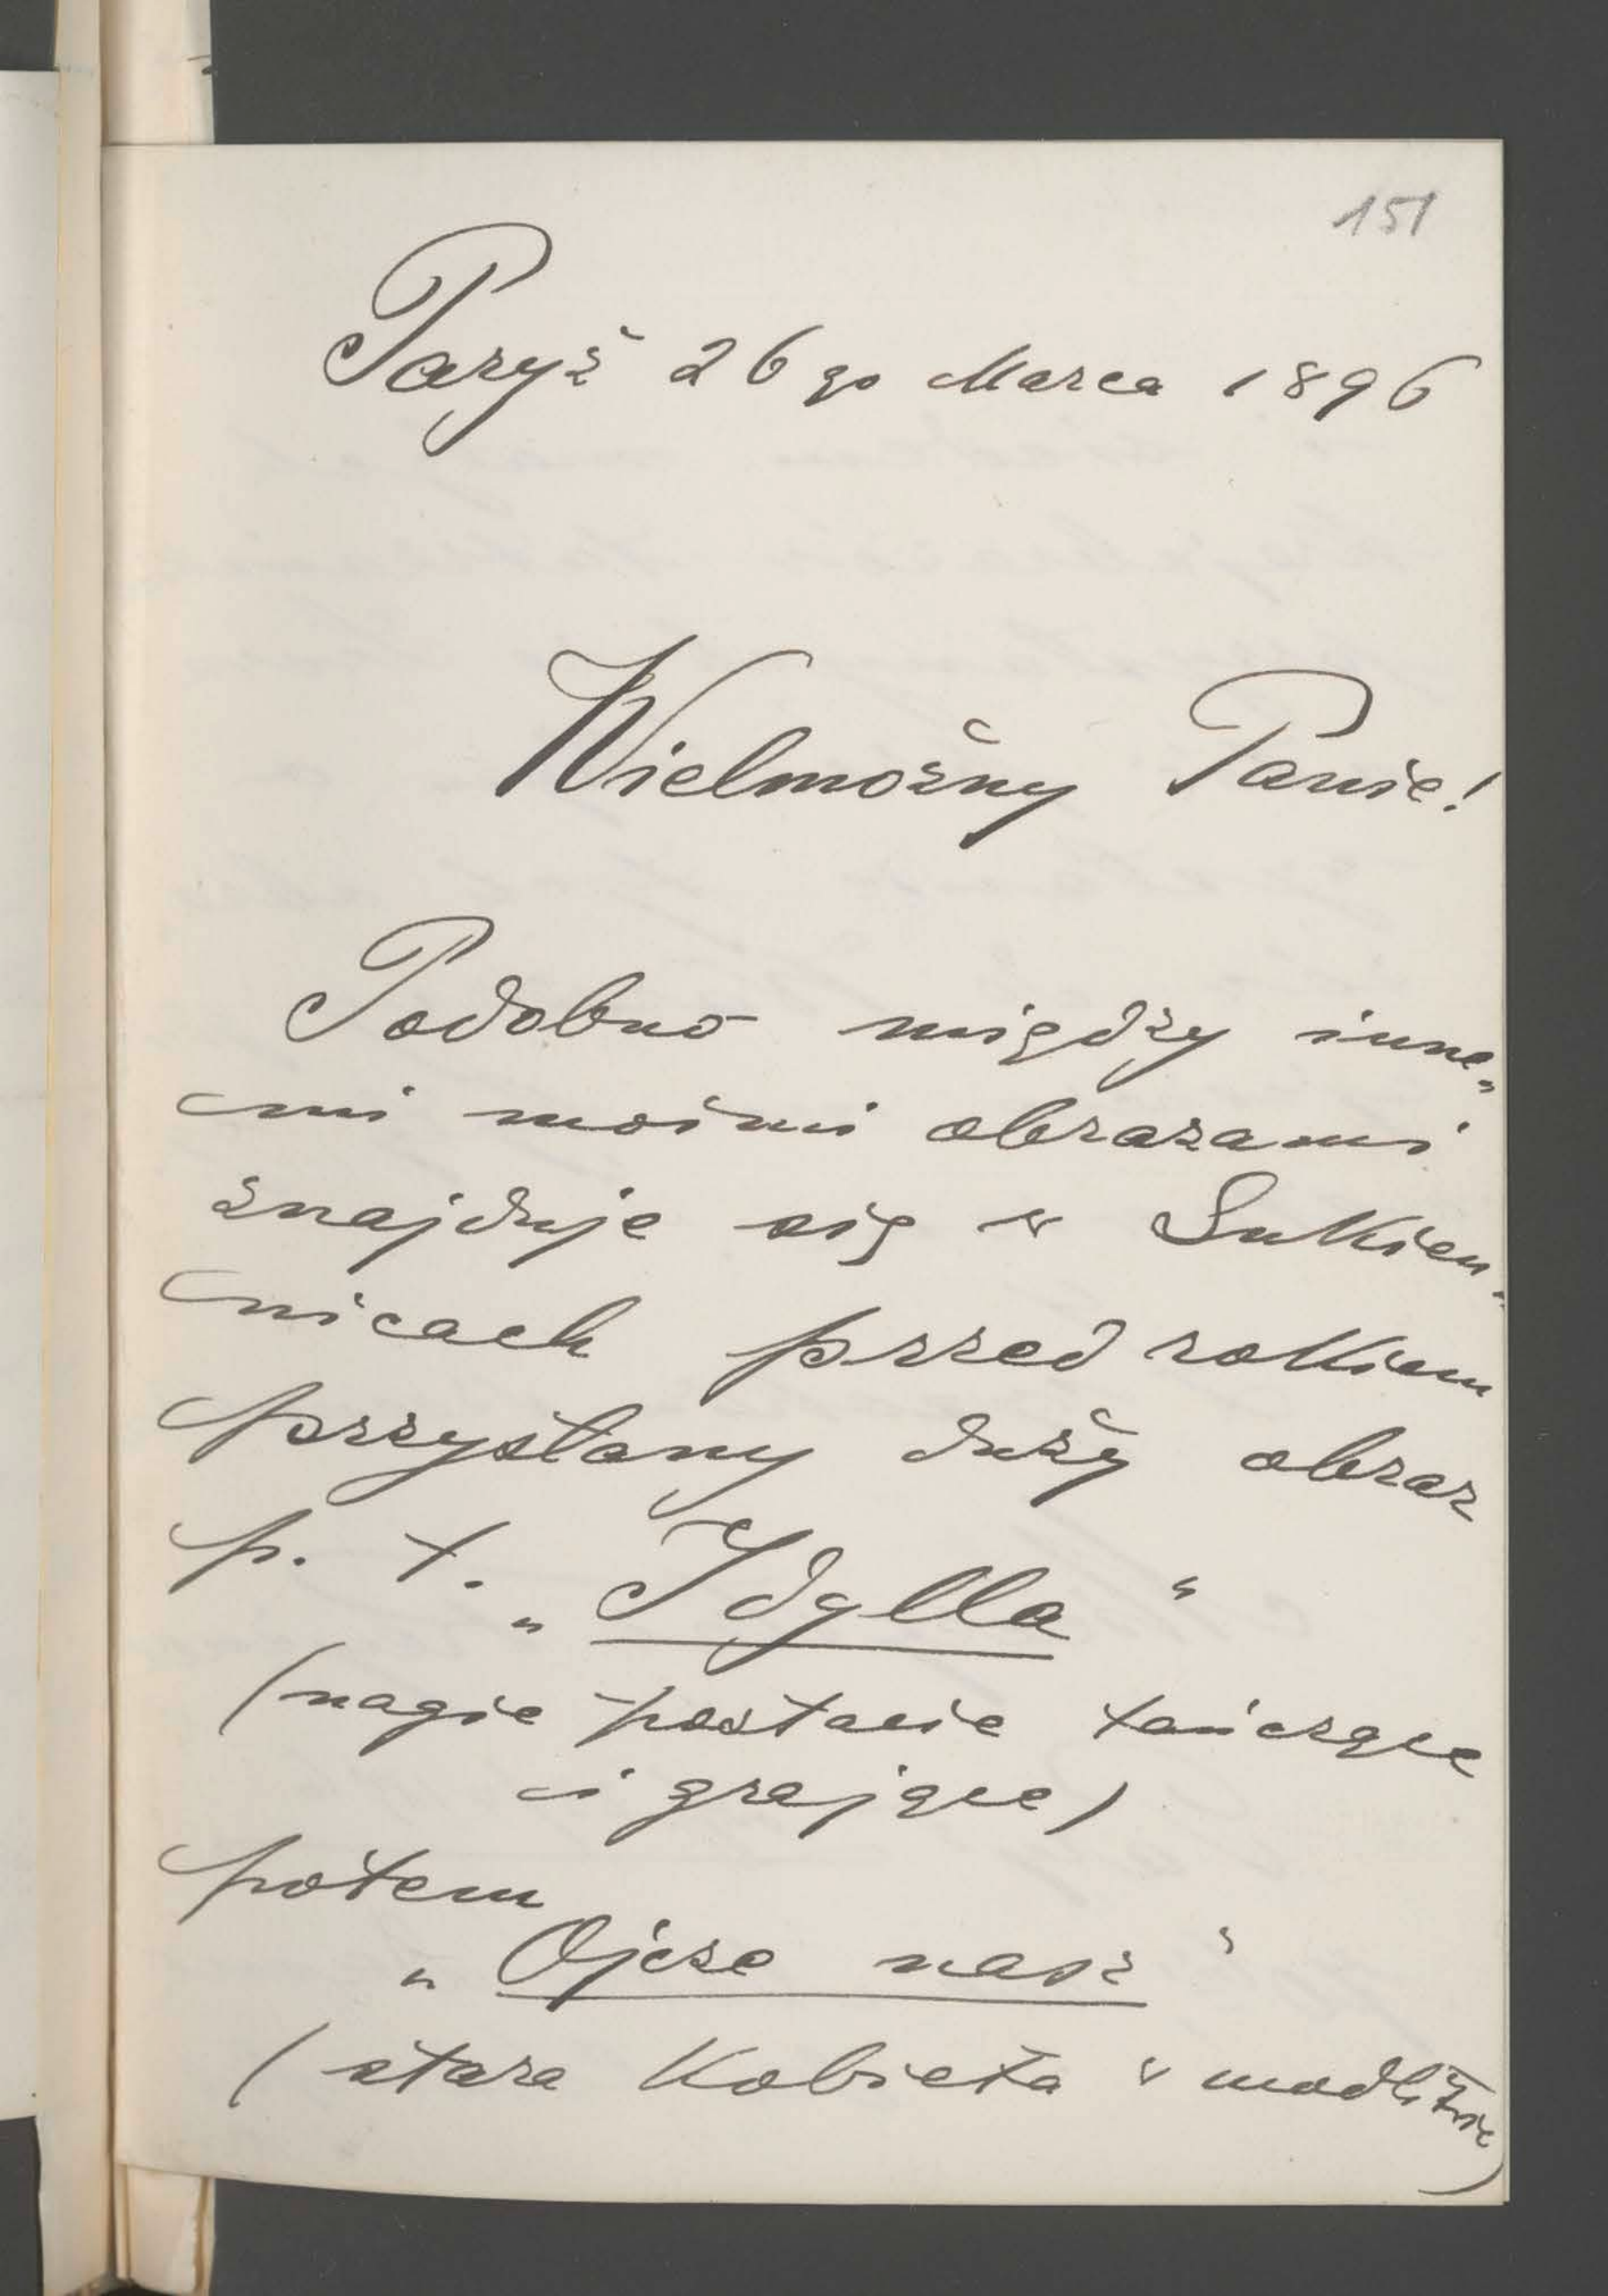 151
Paryż 26 go Marca 1896
Wielmożny Panie!
Podobno między inne„
mi moimi obrazami
znajduje się w Sukien„
nicach przed rokiem
przysłany duży obraz
p. t. „Idylla“
(nagie postacie tańczące
i grające)
potem
„Ojcze nasz“
(stara kobieta w modlitwie)